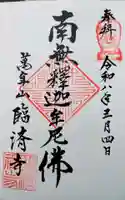 奉拝
令和八年三月四日
南無釋迦牟尼佛
萬年山臨濟寺